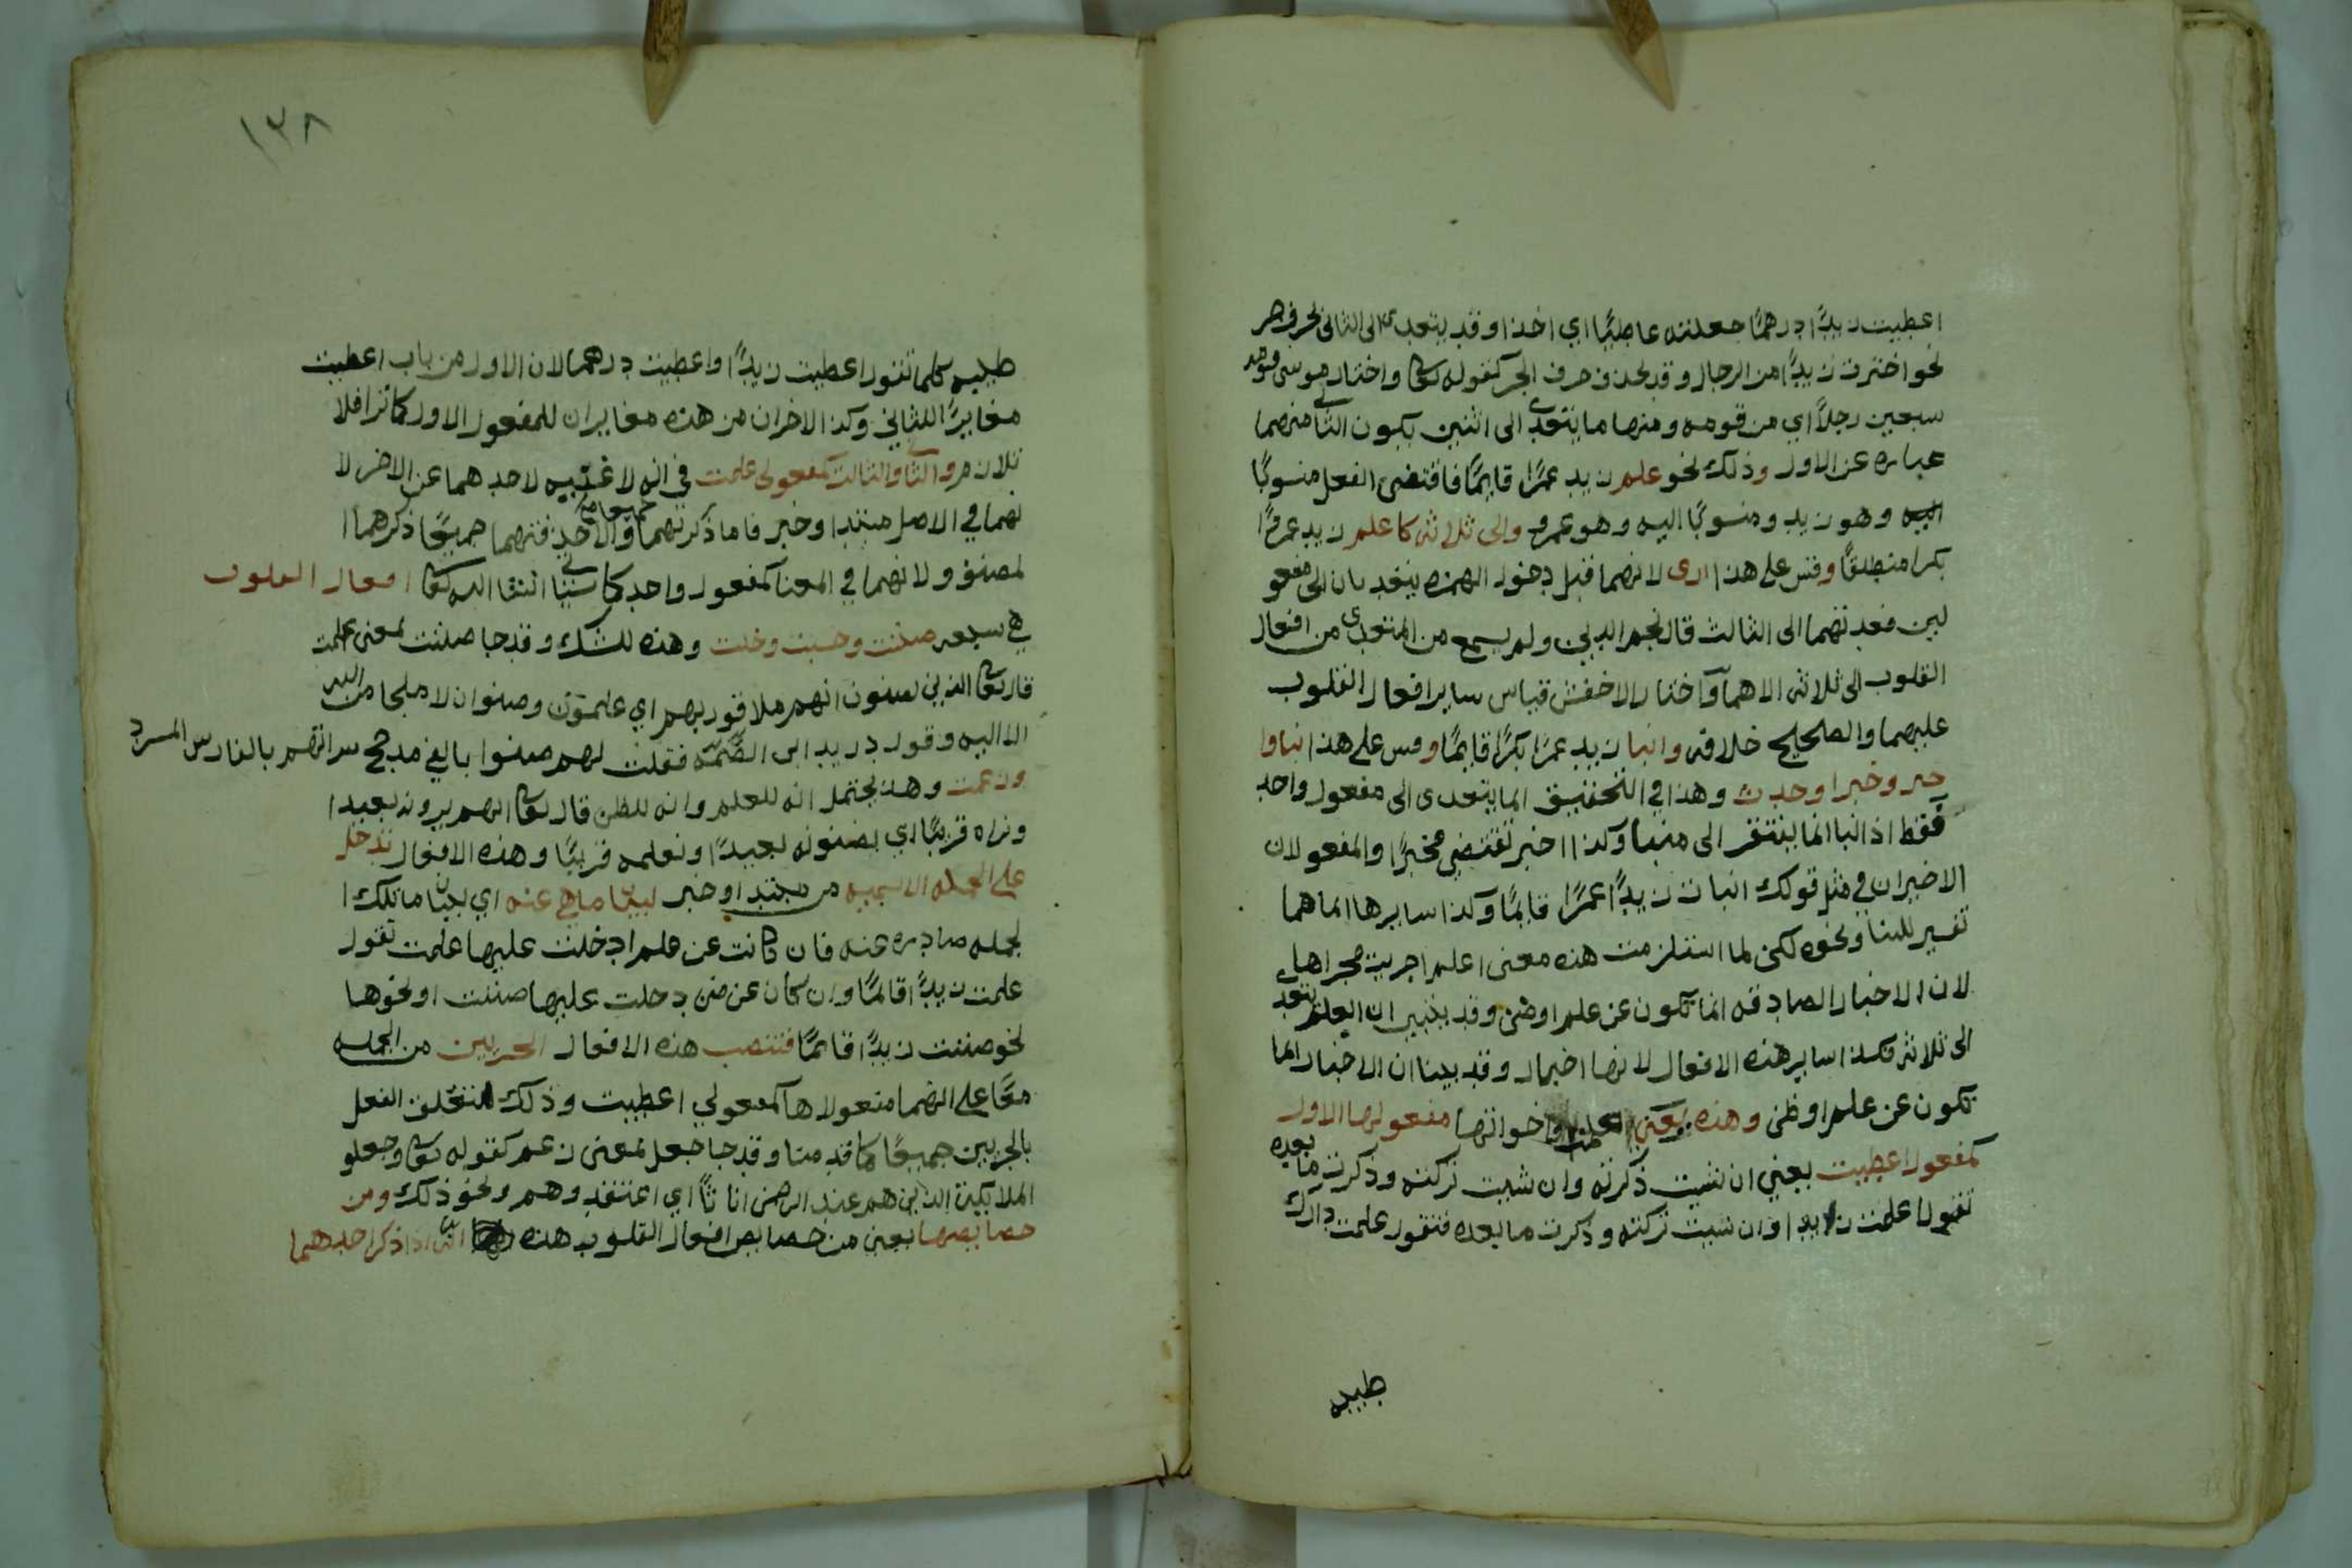 اعطيت زيدًا درهمًا جعلته عاطيًا اي اخذا وقد يتعدى الى الثاني بحرف جر
نحو اخترت زيدًا من الرجال وقد يحذف حرف الجر كقوله تعا واختار موسى قومه
سبعين رجلاً اي من قومه ومنها ما يتعدى الى اثنين يكون الثاني منهما
عباره عن الاول وذلك نحو علم زيد عمرًا قايمًا فاقتضى الفعل منسوبًا
اليه وهو زيد ومنسوبًا اليه وهو عمرو والى ثلاثه كاعلم زيد عمروًا
بكرا منطلقًا وقس على هذا ارى لانهما قبل دخول الهمزه يتعديان الى مفعو
لين فعدتهما الى الثالث قال نجم الدين ولم يسمع من المتعدى من افعال
القلوب الى ثلاثه الا هما واختار الاخفش قياس ساير افعال القلوب
عليهما والصحيح خلافه وانبا زيد عمرًا بكرًا قايمًا وقس على هذا نباوا
خبر وخبرا وحدث وهذا في التحقيق انما يتعدى الى مفعول واحد
فقط اذ انبا انما يفتقر الى منبا وكذا اخبر تقتضي مخبرًا والمفعولان
الاخيران في مثل قولك انبات زيدًا عمرًا قايمًا وكذا سايرها انما هما
تفسير للنبا ونحوه لكن لما استلزمت هذه معنى اعلم اجريت مجراها
لان الاخبار الصادقه انما تكون عن علم اوظن وقد بنيين ان العلم يتعد
الى ثلاثه فكذا ساير هذه الافعال لانها اخبار وقد بينا ان الاخبار انما
تكون عن علم اوظن وهذه يعني اعلم واخواتها مفعولها الاول
كمفعول اعطيت يعني ان شيت ذكرته وان شيت تركته وذكرت ما بعده
تقول اعلمت زيدا وان شيت تركته وذكرت ما بعده فتقول علمت دارك
طيبه
١٣٨
طيبه كلما تقول اعطيت زيدًا واعطيت درهما لان الاول من باب اعطيت
مغايرًا للثاني وكذا الاخران من هذه مغايران للمفعول الاول كما ترا فلا
تلازم والثاني والثالث كمفعولي علمت في انه لا غنيه لاحدهما عن الاخر لا
نهما في الاصل مبتدا وخبر فاما ذكرتهما جميعا والا حذفتهما جميعًا ذكرهما ا
لمصنف ولانهما في المعنا كمفعول واحد كما سياتي انشا الله تعا افعال القلوب
هي سبعه ضننت وحسبت وخلت وهذه للشك وقد جا ضننت بمعنى علمت
قال تعا الذين يضنون انهم ملاقو ربهم اي علمون وضنوا ان لا ملجا من الله
الا اليه وقول دريد ابن الصمه فقلت لهم ضنوا بالفي مدجج سراتهم بالفارس المسرد
وزعمت وهذه يحتمل انه للعلم وانه للظن قال تعا انهم يرونه بعيدا
ونراه قريبًا اي يضنونه بعيدًا ونعلمه قريبًا وهذه الافعال تدخل
على الجمله الاسميه من مبتدا وخبر لبيان ما هي عنه اي لبيان ما تلك ا
لجمله صادره عنه فان كانت عن علم ادخلت عليها علمت تقول
علمت زيدًا قايمًا وان كان عن ضن دخلت عليها ضننت اونحوها
نحو ضننت زيدًا قايمًا فتنصب هذه الافعال الجزيين من الجمله
معًا على انهما مفعولاها كمفعولي اعطيت وذلك لتعلق الفعل
بالجزيين جميعًا كما قدمنا وقد جا جعل بمعنى زعم كقوله تعا وجعلو
الملايكة الذين هم عند الرحمن اناثًا اي اعتقدوهم ونحو ذلك ومن
خصايصها يعني من خصايص افعال القلوب هذه انه اذا ذكر احدهما